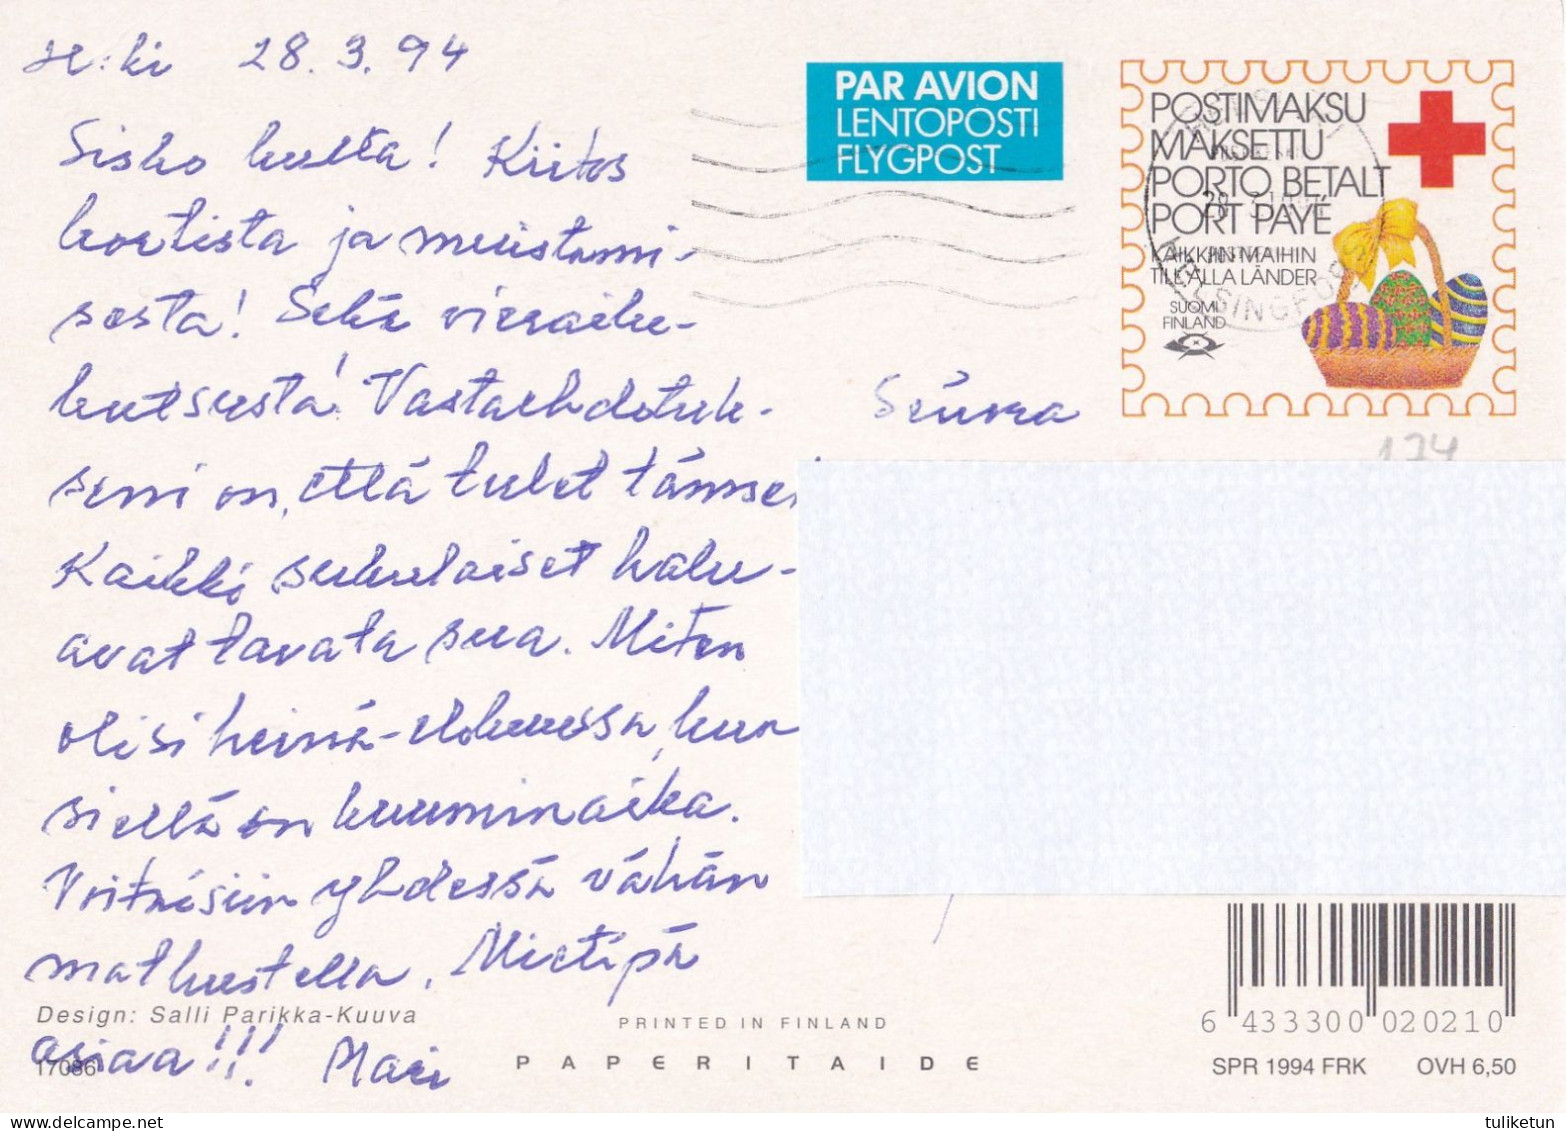 H:ki 28.3.94
Sisko kulta! Kiitos
kortista ja muistami-
sesta! Sekä vieraile-
kutsusta! Vastaehdotuk-
seni on, että tulet tänne.
Kaikki sukulaiset halu-
avat tavata sua. Miten
olisi heinä-elokuussa, kun
siellä on kuumin aika.
Voitaisiin yhdessä vähän
matkustella. Mietipä
asiaa!!! Mari
PAR AVION
LENTOPOSTI
FLYGPOST
POSTIMAKSU
MAKSETTU
PORTO BETALT
PORT PAYÉ
KAIKKIIN MAIHIN
TILL ALLA LÄNDER
SUOMI
FINLAND
HELSINGFORS
174
Design: Salli Parikka-Kuuva
17086
PRINTED IN FINLAND
PAPERITAIDE
6 433300 020210
SPR 1994 FRK OVH 6,50
tuliketun